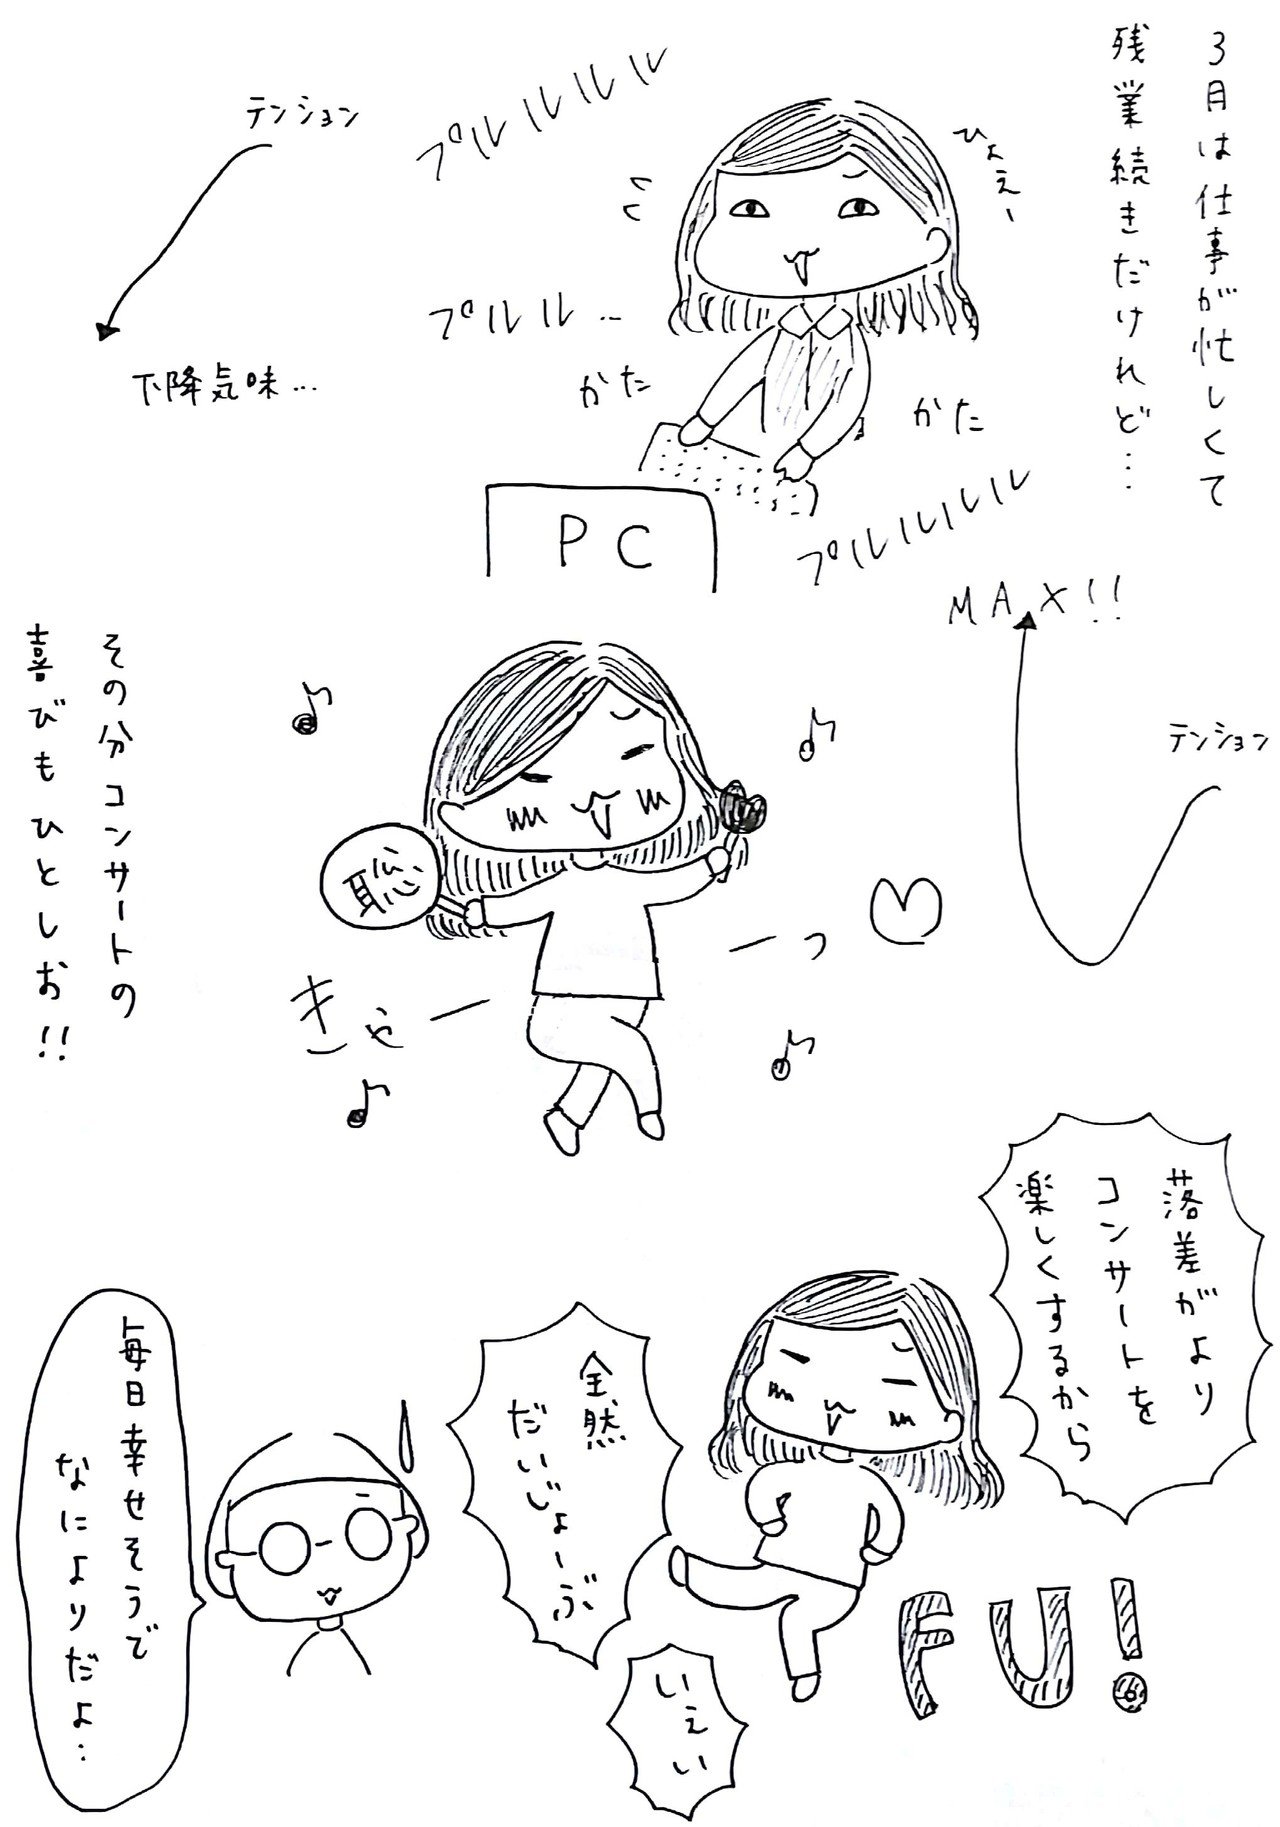 3月は仕事が忙しくて
残業続きだけれど…
ひょえー
プルルルルル
テンション
下降気味…
プルルル…
かた
かた
PC
プルルルルルル
MAX!!
テンション
その分コンサートの
喜びもひとしお!!
恥
きゃー
ーっ
落差がより
コンサートを
楽しくするから
全然
だいじょーぶ
いえい
FU!
毎日幸せそうで
なによりだよ…